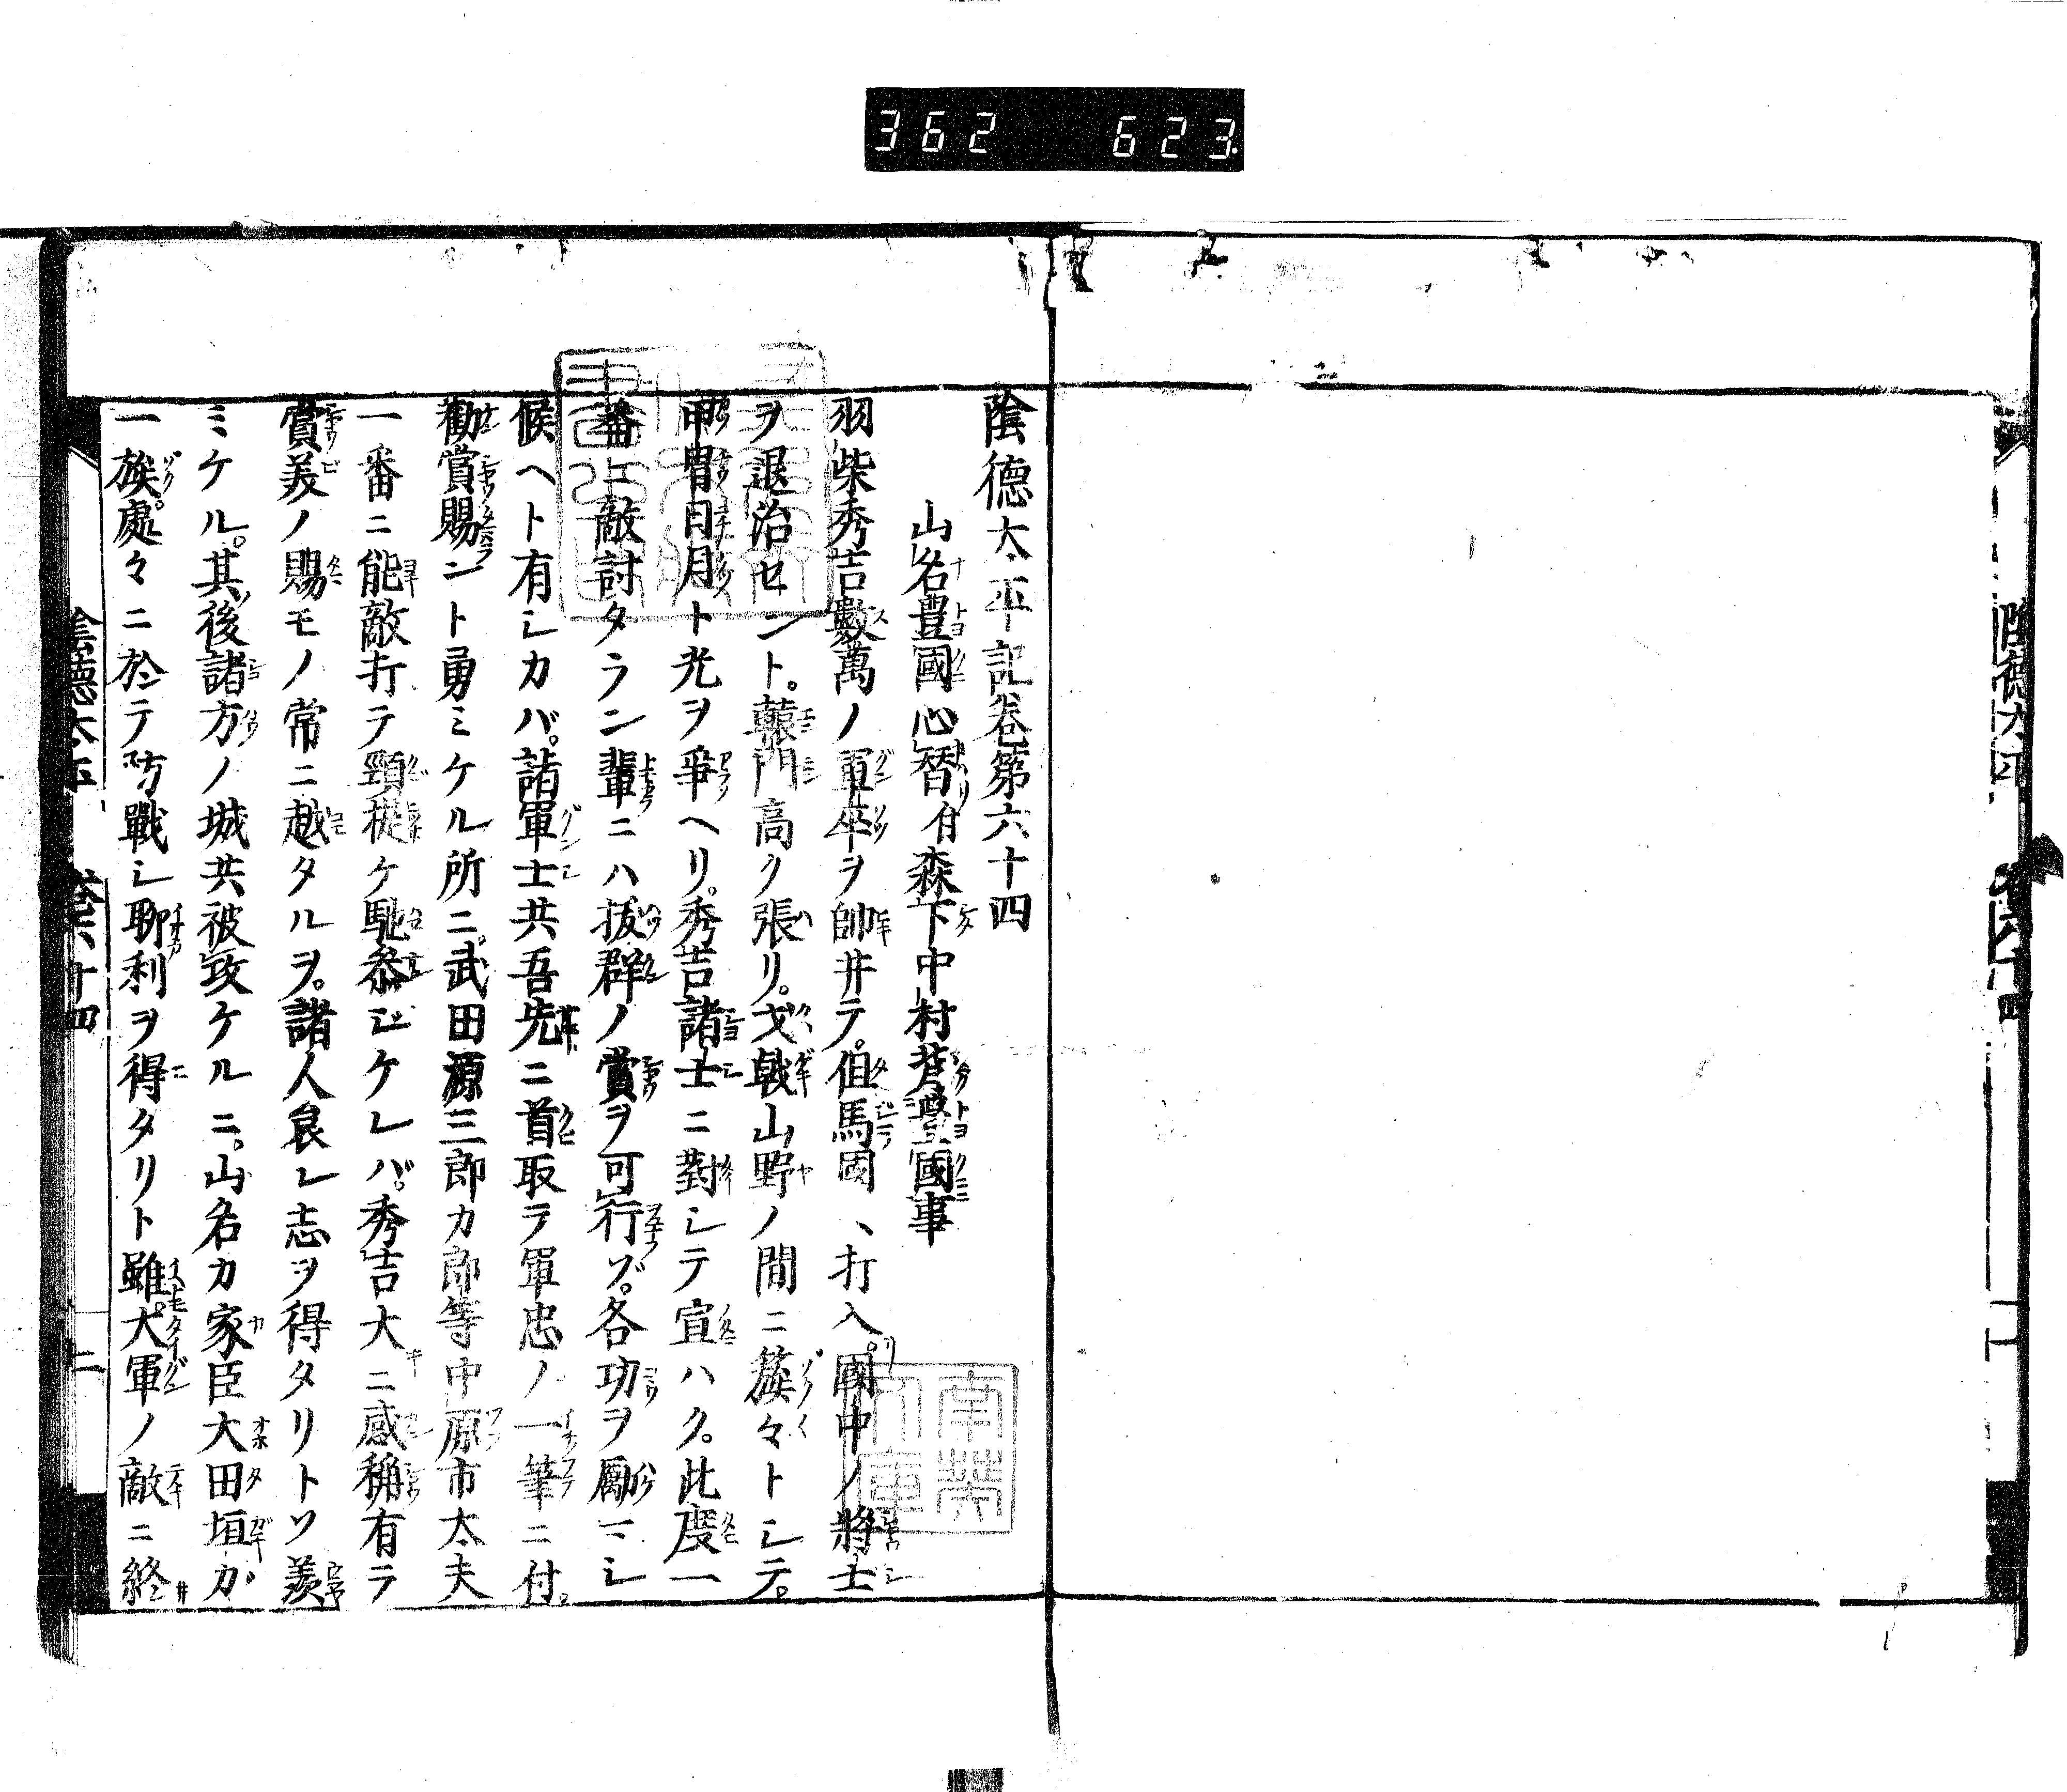 362 623
陰德太平記卷第六十四
山名豊國心替付森下中村弑豊國事
羽柴秀吉數萬ノ軍卒ヲ帥井テ。伯馬因、打入。國中ノ將士
ヲ退治セント。轅門高ク張リ。戈戟山野ノ間ニ簇々トシテ。
甲冑日月ト光ヲ爭ヘリ。秀吉諸士ニ對シテ宣ハク。此度一
番ニ敵討タラン輩ニハ拔群ノ賞ヲ可行ゾ。各功ヲ勵マシ
候ヘト有シカバ。諸軍士共吾先ニ首取テ軍忠ノ一筆ニ付。
勸賞賜ント勇ミケル所ニ。武田源三郎カ郎等中原市太夫
一番ニ能敵打テ頸提ケ馳參ジケレバ。秀吉大ニ感稱有テ
賞美ノ賜モノ常ニ越タルヲ。諸人哀レ志ヲ得タリトソ羨
ミケル。其後諸方ノ城共被攻ケルニ。山名カ家臣大田垣カ
一族處々ニ於テ防戰シ聊利ヲ得タリト雖。大軍ノ敵ニ終
陰德太平 卷六十四 二